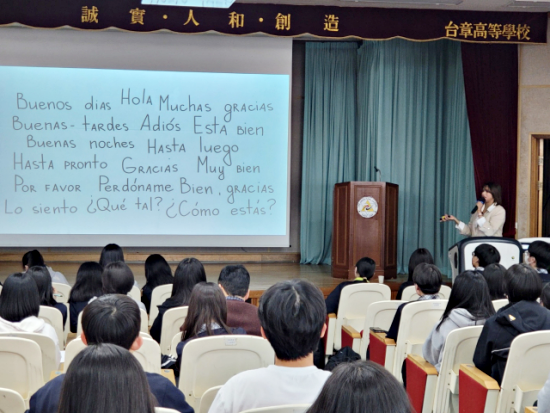 誠實·人和·創造
台章高等學校
Buenos dias Hola Muchas gracias
Buenas-tardes Adiós Esta bien
Buenas noches Hasta luego
Hasta pronto Gracias Muy bien
Por favor Perdóname Bien, gracias
Lo siento ¿Qué tal? ¿Cómo estás?